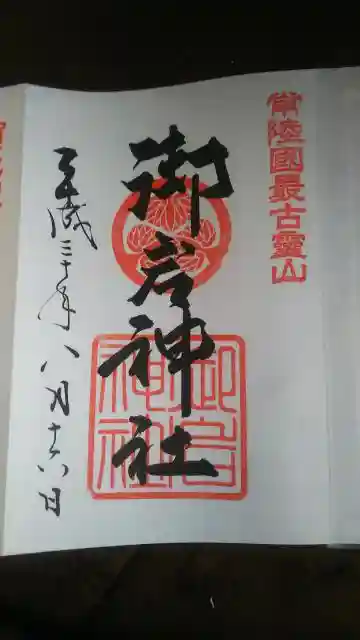 常陸國最古靈山
御岩神社
御岩
神社
平成三十年八月十六日